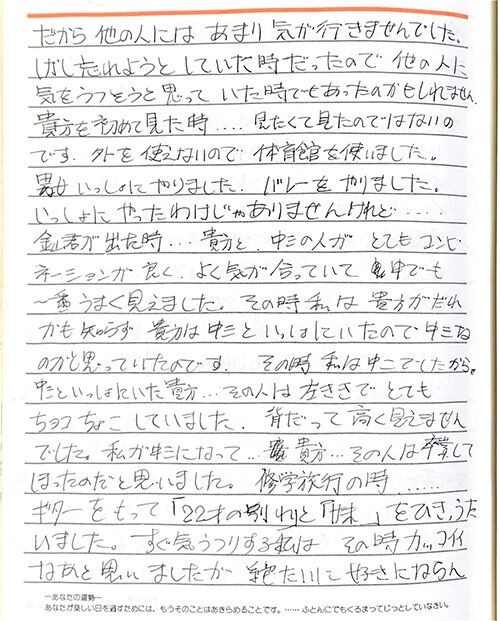 だから 他の人には あまり 気が行きませんでした。
しばし忘れようと していた時だったので 他の人に
気をうつそうと思って いた時でもあったのかもしれません.
貴方を初めて見た時..... 見たくて見たのではないの
です. 外を使えないので 体育館を使いました。
男女 いっしょに やりました. バレーを やりました。
いっしょに やったわけじゃありませんけれど.....
君が出た時... 貴方と. 中三の人が とてもコンビ
ネーションが良く. よく気が合っていて 中でも
一番うまく見えました。 その時 私は 貴方がだれ
かも知らず 貴方は中三といっしょにいたので中三な
のかと思っていたのです. その時 私は中二でしたから。
中三といっしょにいた貴方...その人は左ききで とても
ちょこ ちょこ していました. 背だって 高く見えません
でした。 私が中三になって... 貴方...その人は 卒業して
しまったのだと思いました。 修学旅行の時 ......
ギターをもって 「22才の別れ」と「 」をひき,うた
いました。 すぐ気うつりする私は その時 カッコイイ
なあと思いましたが 絶たいに 好きにならん
―あなたの運勢―
あなたが楽しい日を過すためには、もうそのことはあきらめることです。…… ふとんにでもくるまってじっとしていなさい。